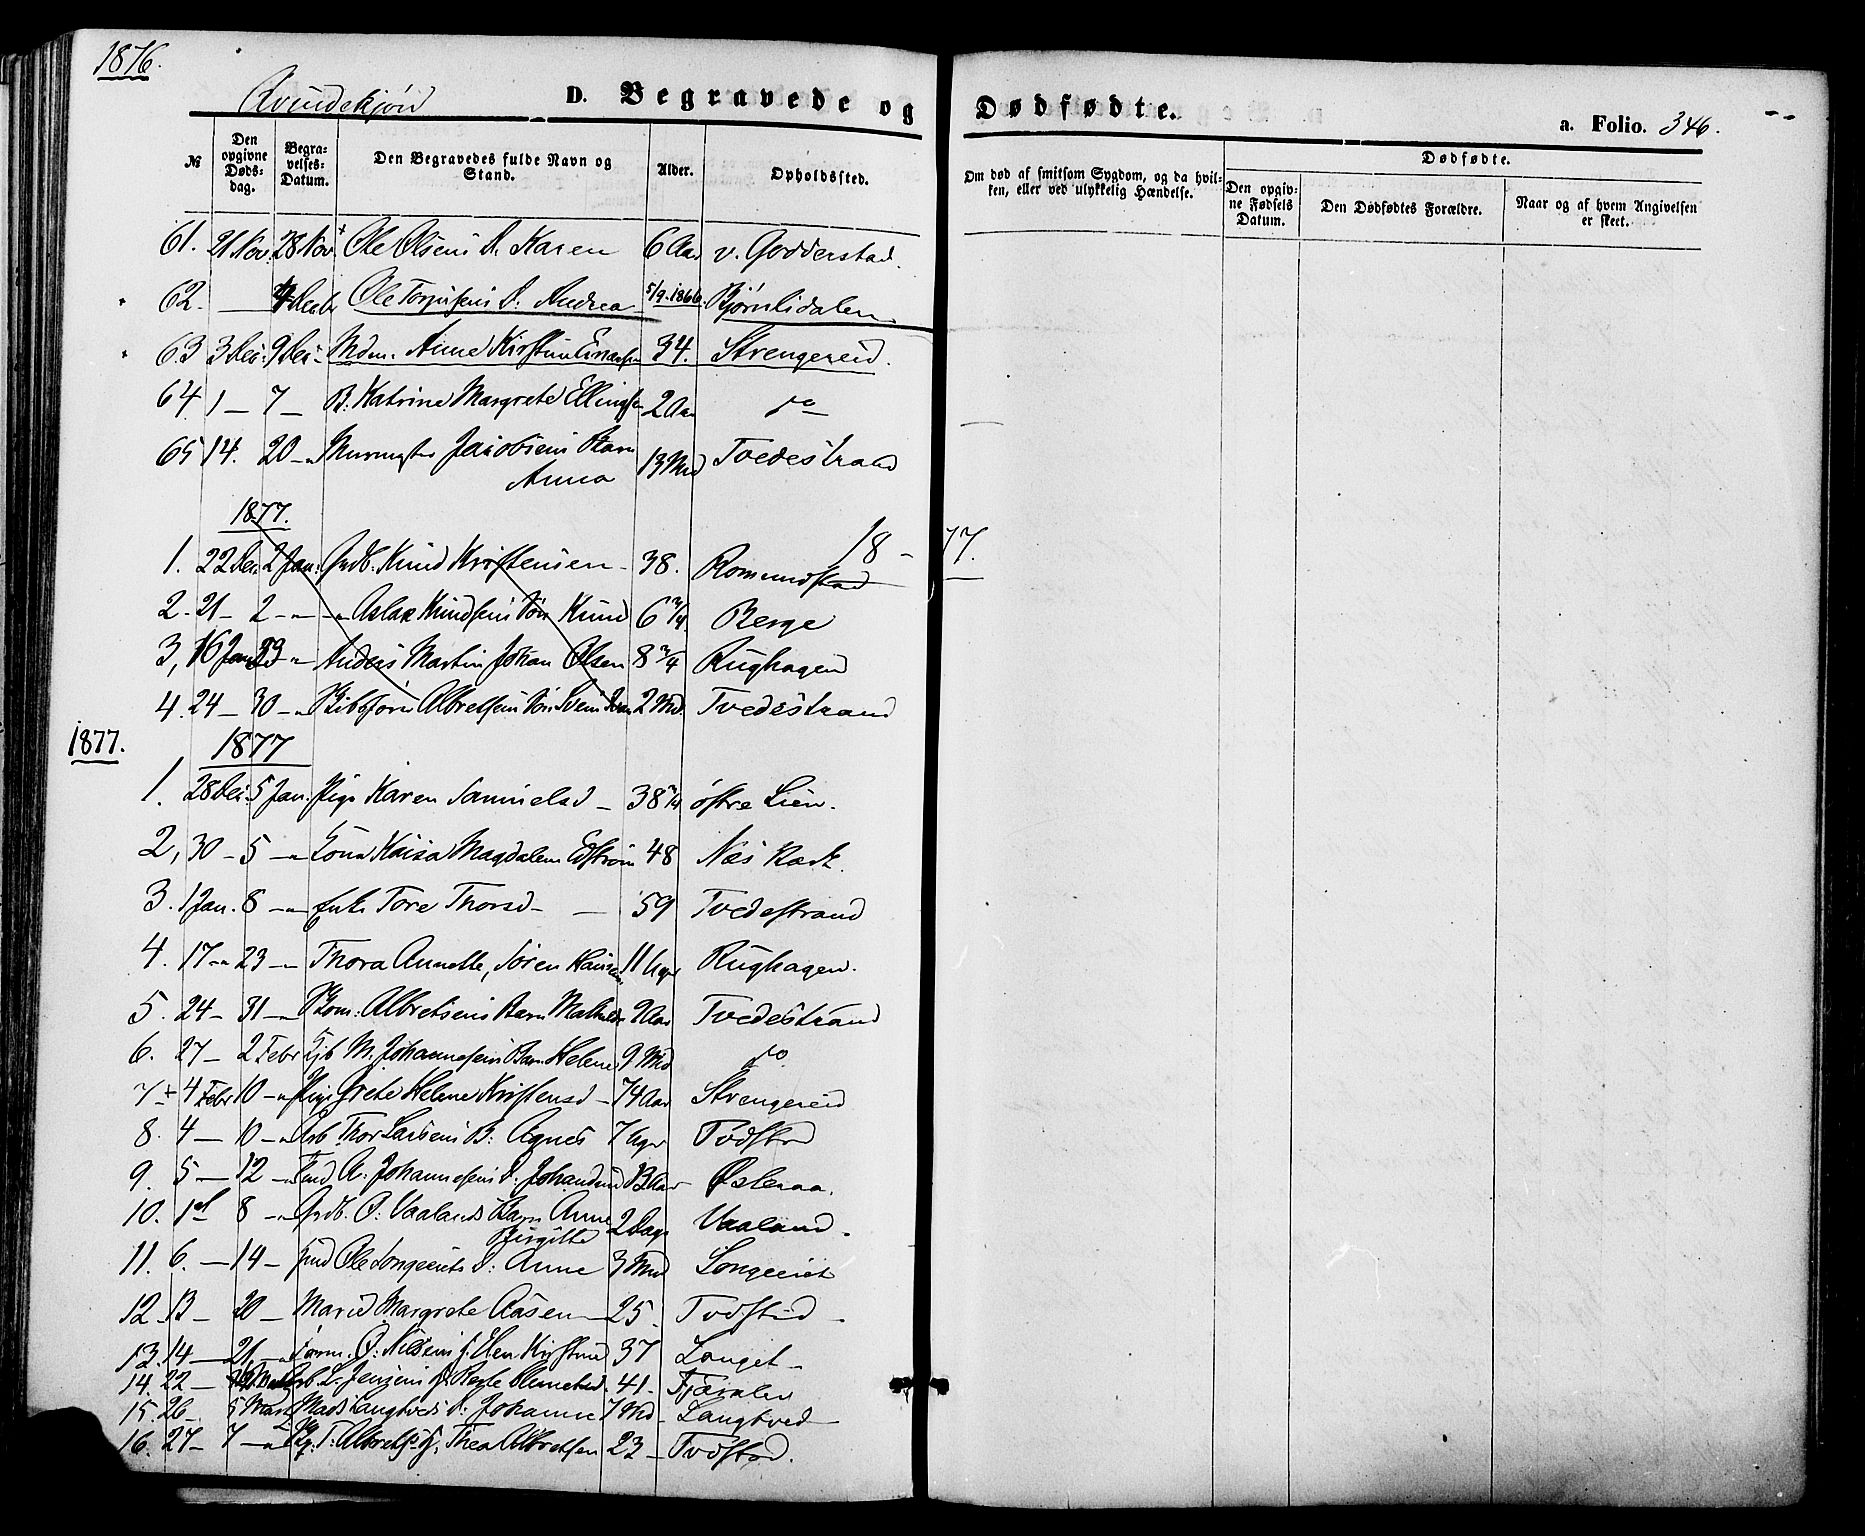 1876.
Qvindekjøn D. Begravede og Dødfødte.
a. Folio. 346.
№ Den opgivne Døds-dag. Begra-velses-Datum. Den Begravedes fulde Navn og Stand. Alder. Opholdssted. Om død af smitsom Sygdom, og da hvil-ken, eller ved ulykkelig Hændelse. Dødfødte.
Den opgiv-ne Fødsels Datum. Den Dødfødtes Forældre. Naar og af hvem Angivelsen er skeet.
61. 21 Nov. 28 Nov Ole Olsens D. Karen 6 Aar v. Godderstad.
62. — Decbr Ole Torjusens D. Andrea 5/9.1866. Bjørnlidalen
63 3 Dec. 9 Dec. Mdm. Anne Kirstine 34. Strengereid.
64. 1 — 7 — B. Katrine Margrete Ellingsen 2 Aar do
65 14. 20 — Murmester Jacobsens Barn Anna 13 Md Tvedestrand
1877.
18 - 77.
1. 22 Dec. 2 Jan. Grdb. Knud Kristensen 38. Romundstad
2. 21 — 2 — Aslak Knudsens Søn Knud 6 3/4 Berge
3, 16 Jan 23 — Anders Martin Johan Olsen 8 3/4 Rughagen
4. 24 — 30 — Albretsens Søn Svend 2 Md. Tvedestrand
1877.
1877
1. 28 Dec. 5 Jan. Pige Karen Samuelsd — 38 østre Lien.
2, 30 — 5 — Kona Kaisa Magdalena Edstrøm 48 Næs Værk.
3. 1 Jan. 8 — Enke Tore Thorsd — 59 Tvedestrand
4. 17 — 23 — Thora Annette, Søren Hansen 11 Uger Rughagen.
5. 24 — 31 — Albretsens Barn Mathilde 2 Aar Tvedestrand
6. 27 — 2 Febr M. Johannesens Barn Helene 9 Md do
7 4 Febr 10 — Pige Grete Helene Kristensd — 74 Aar Strengereid
8. 4 — 10 — Arb Thor Larsens B: Agnes 7 Uger Tvdstrd
9. 5 — 12 — A. Johannesens D. Johandine 13 Aar Østeraa.
10. 1st 8 — Grdb. O. Vaalands Barn Anne Birgitte 2 Dage Vaaland.
11. 6. — 14 — Ole Songereits D: Anne 3 Md Songereit
12. 13 — 20 — Marie Margrete Aasen — 25 Tvdstrd
13. 14 — 21 — O. Nilsens H. Elen Kirstine 37 Langet
14. 22 — Arb L. Jensens H. 41. Fjæralen
15. 26 — 5 Marts Mads Langtveds D. Johanne 7 Md Langtved
16. 27 — 7 — T. Albrets. H. Thea Albretsen 23 — Tvdstrd.